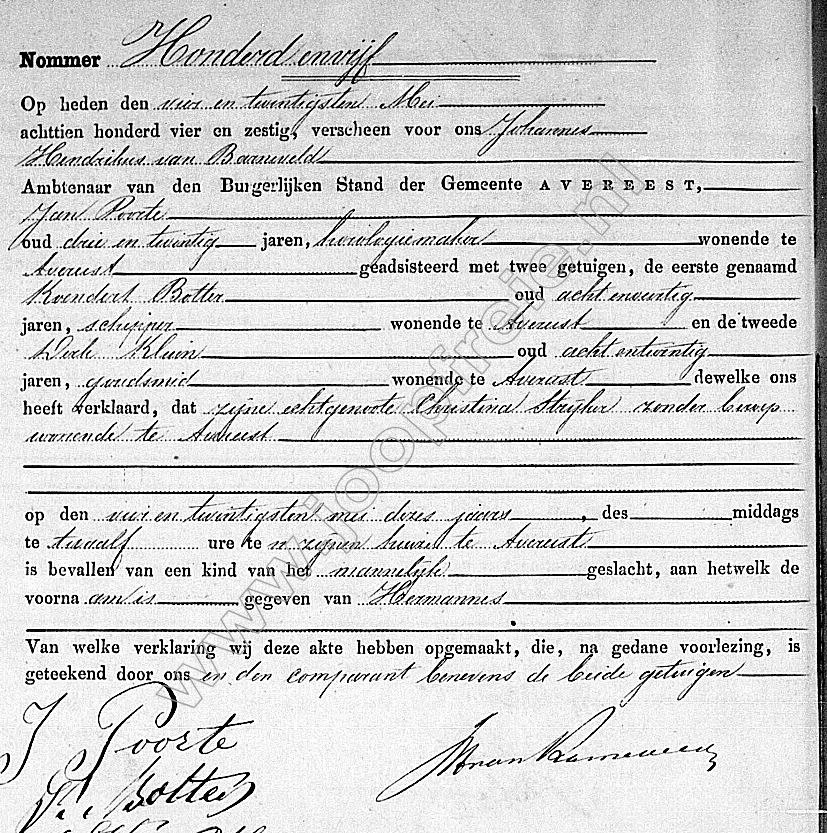 Nommer Honderd en vijf
Op heden den vier en twintigsten Mei
achttien honderd vier en zestig, verscheen voor ons Johannes
Hendrikus van Barneveld
Ambtenaar van den Burgerlijken Stand der Gemeente AVEREEST,
Jan Poorte
oud drie en twintig jaren, horologiemaker wonende te
Avereest geadsisteerd met twee getuigen, de eerste genaamd
Koendert Botter oud acht en veertig
jaren, schipper wonende te Avereest en de tweede
Derk Kluin oud acht en twintig
jaren, goudsmid wonende te Avereest dewelke ons
heeft verklaard, dat zijne echtgenoote Christina Strijker zonder beroep
wonende te Avereest
op den vier en twintigsten mei dezes jaars, des middags
te twaalf ure te n zijnen huize te Avereest
is bevallen van een kind van het mannelijk geslacht, aan hetwelk de
voorna am is gegeven van Hermannes
Van welke verklaring wij deze akte hebben opgemaakt, die, na gedane voorlezing, is
geteekend door ons en den comparant benevens de beide getuigen
J Poorte
Botter
www.joopfreie.nl